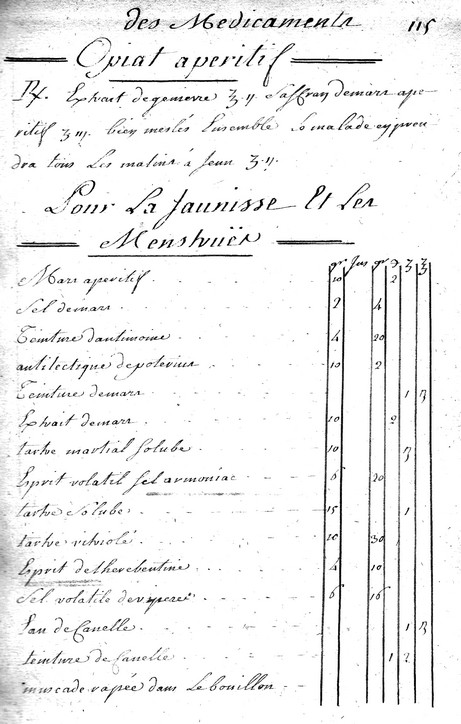 des Medicaments 115
Opiat aperitif
℞. Extrait degenievre ʒ.ij. Saffran demars ape-
ritif ʒ.iij. bien meslés Ensemble Le malade en pren-
dra tous Les matins à Jeun ʒ.ij.
Pour La Jaunisse Et Les
Menstruës
gr Jus gr ℈ ʒ ℥
Mars aperitif. 10 2
Sel demars. 2 4
Teinture dantimoine. 4 20
antilectique depoterius. 10 2
Teinture demars 1 ß
Extrait demars. 10 2
tartre martial Soluble. 10 ß
Esprit volatil Sel armoniac 6 20
tartre Soluble. 15 1
tartre vitriolé. 10 30
Esprit detherebentine. 4 10
Sel volatile devipere. 6 16
Eau de Canelle. 1 ß
teinture de Canelle. 1 2
muscade rapée dans Le bouillon